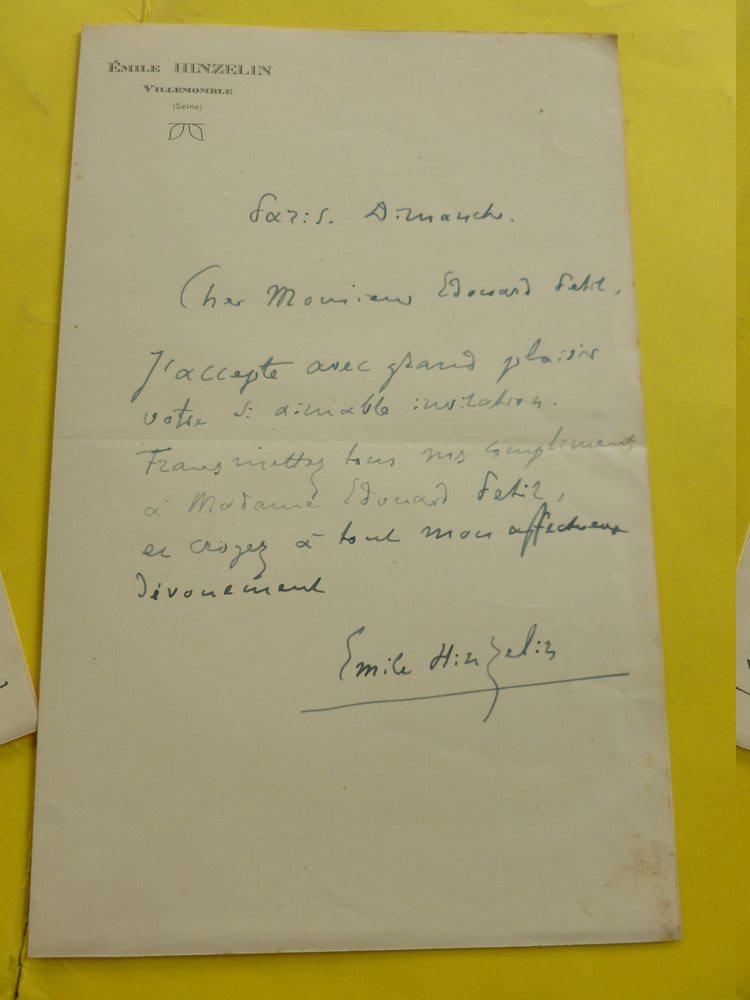 ÉMILE HINZELIN
VILLEMOMBLE
(Seine)
Paris. Dimanche.
Cher Monsieur Edouard Petit,
J'accepte avec grand plaisir
votre si aimable invitation.
Transmettez tous nos compliments
à Madame Edouard Petit,
et croyez à tout mon affectueux
dévouement
Emile Hinzelin